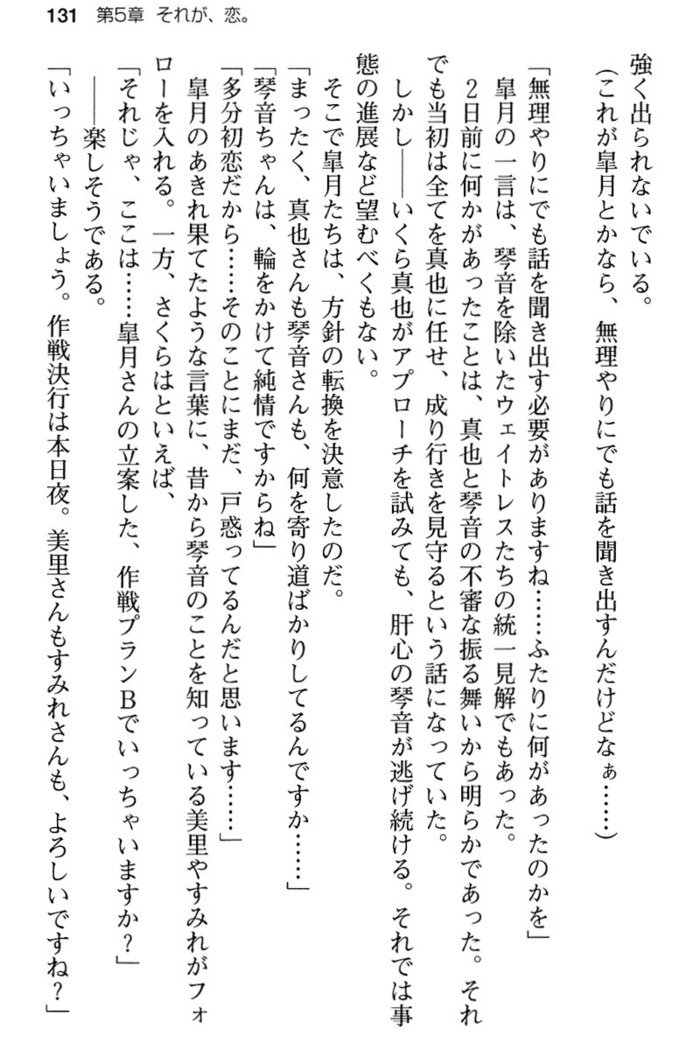 131 第5章 それが、恋。
強く出られないでいる。
(これが皐月とかなら、無理やりにでも話を聞き出すんだけどなぁ……)
「無理やりにでも話を聞き出す必要がありますね……ふたりに何があったのかを」
皐月の一言は、琴音を除いたウェイトレスたちの統一見解でもあった。
2日前に何かがあったことは、真也と琴音の不審な振る舞いから明らかであった。それ
でも当初は全てを真也に任せ、成り行きを見守るという話になっていた。
しかし――いくら真也がアプローチを試みても、肝心の琴音が逃げ続ける。それでは事
態の進展など望むべくもない。
そこで皐月たちは、方針の転換を決意したのだ。
「まったく、真也さんも琴音さんも、何を寄り道ばかりしてるんですか……」
「琴音ちゃんは、輪をかけて純情ですからね」
「多分初恋だから……そのことにまだ、戸惑ってるんだと思います……」
皐月のあきれ果てたような言葉に、昔から琴音のことを知っている美里やすみれがフォ
ローを入れる。一方、さくらはといえば、
「それじゃ、ここは……皐月さんの立案した、作戦プランBでいっちゃいますか?」
――楽しそうである。
「いっちゃいましょう。作戦決行は本日夜。美里さんもすみれさんも、よろしいですね?」